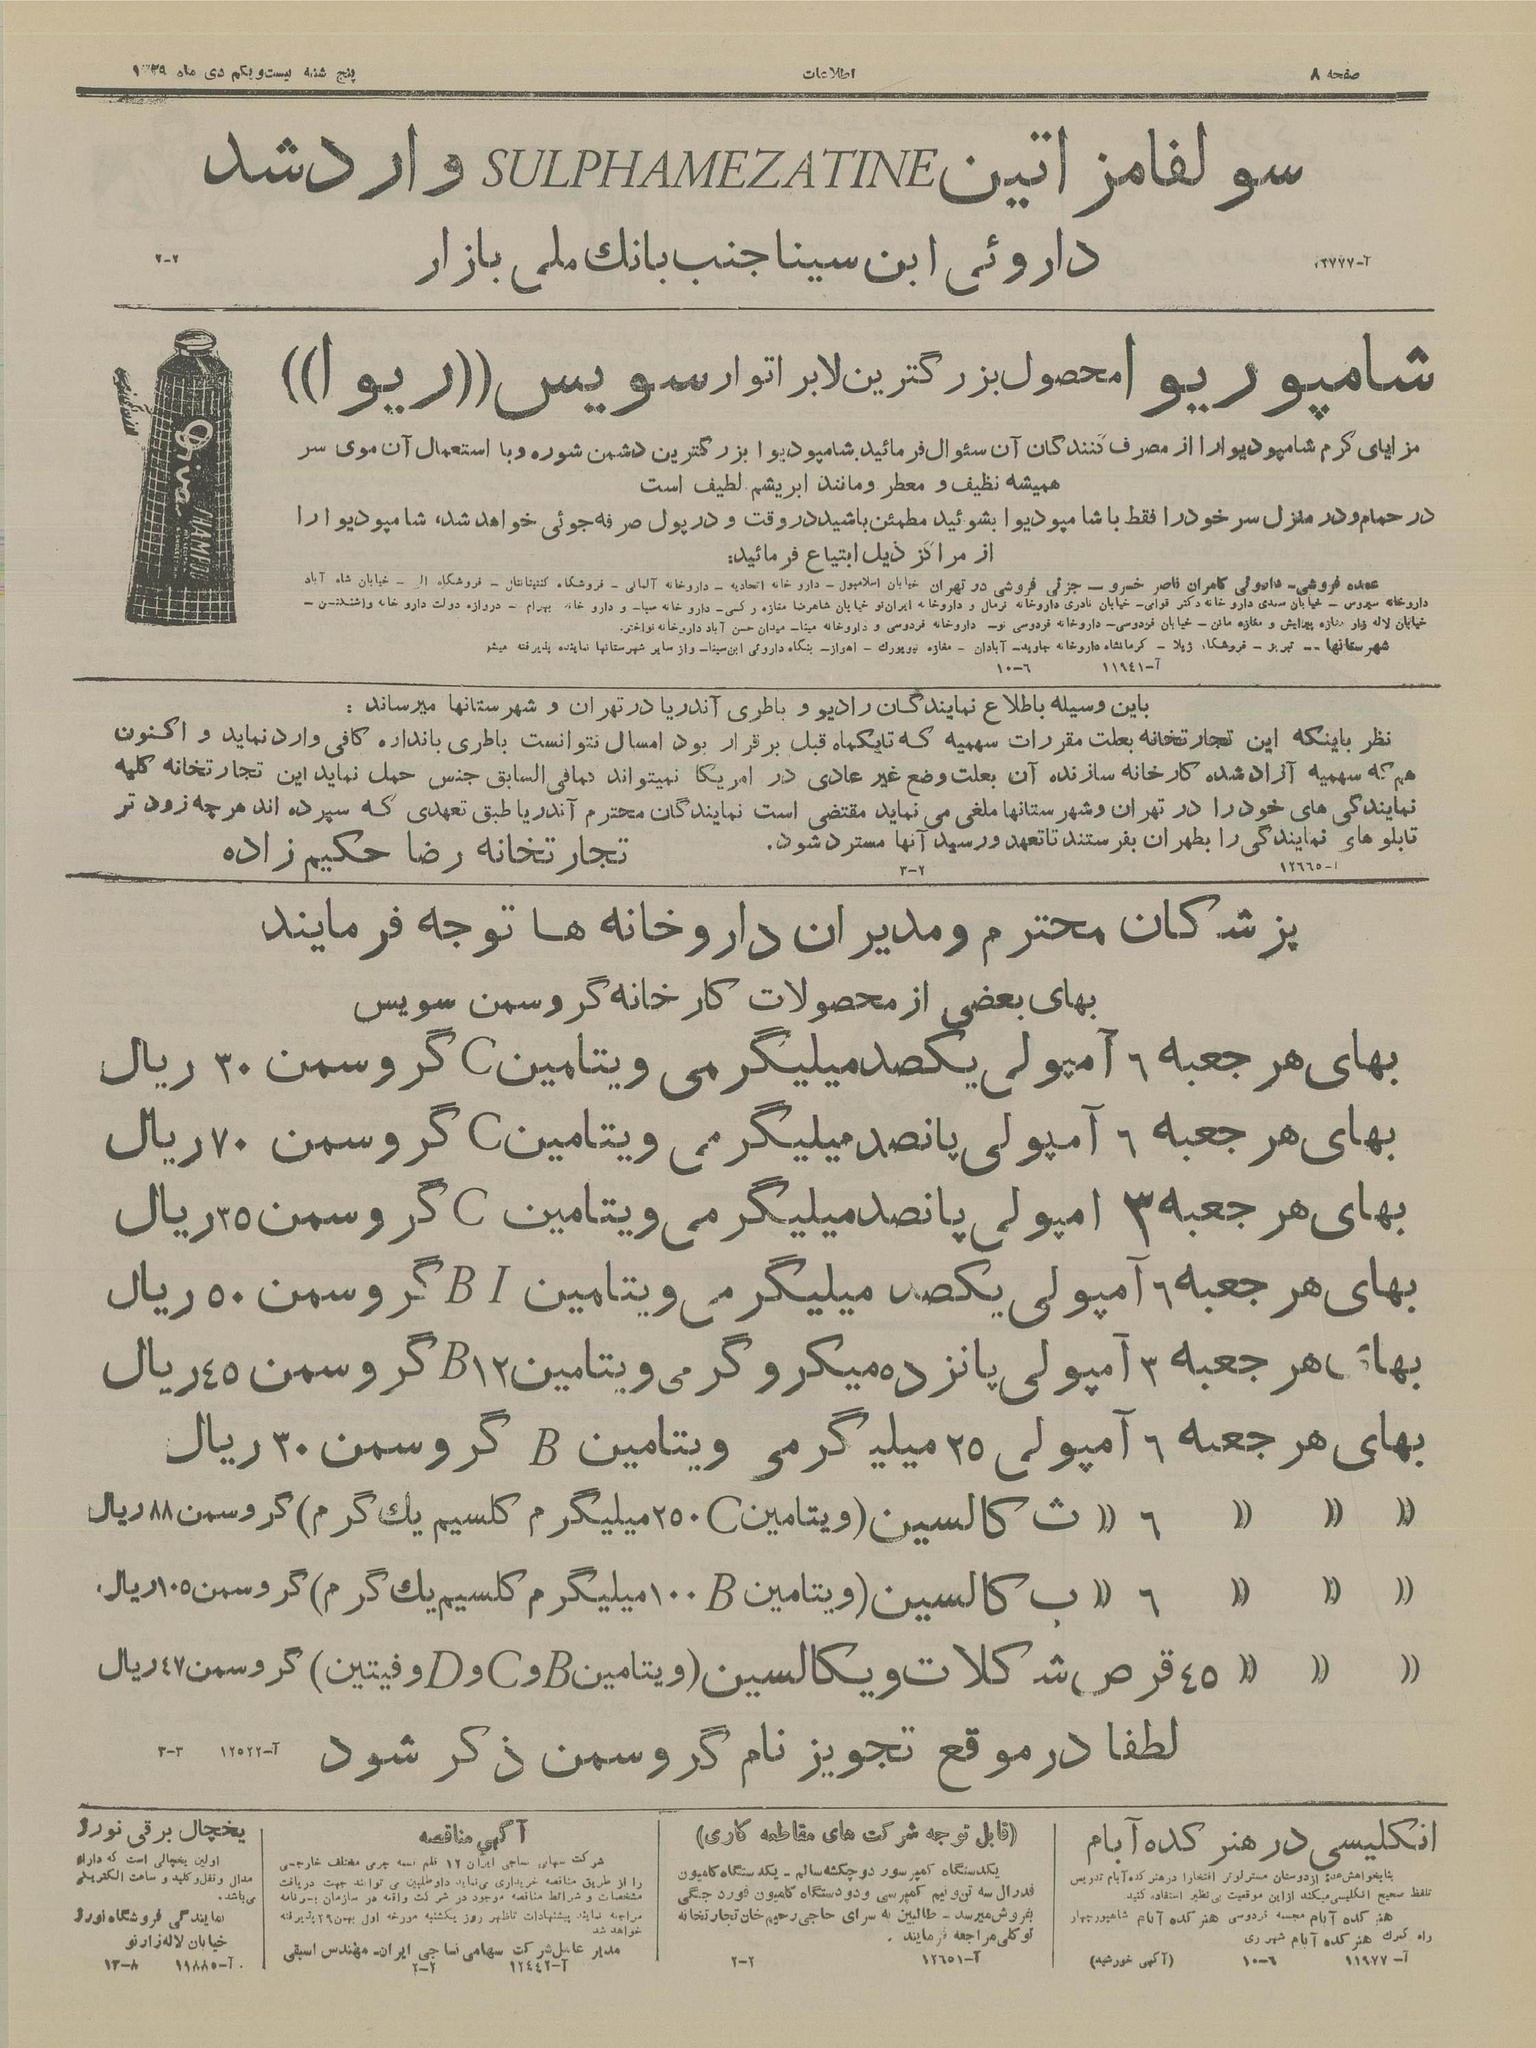 صفحه ۸
اطلاعات
پنج شنبه بیست‌ویکم دی ماه ۱۳۲۹
سولفامزاتین SULPHAMEZATINE واردشد
داروئی ابن سینا جنب بانك ملی بازار
۲-۲
شامپو ریوا محصول بزرگترین لابراتوار سویس ((ریوا))
مزایای کرم شامپودیوارا از مصرف کنندگان آن سئوال فرمائید. شامپودیوا بزرگترین دشمن شوره وبا استعمال آن موی سر
همیشه نظیف و معطر ومانند ابریشم لطیف است
در حمام ودر منزل سر خودرا فقط با شامپودیوا بشوئید مطمئن باشید در وقت و در پول صرفه جوئی خواهد شد، شامپودیوا را
از مراکز ذیل ابتیاع فرمائید:
Diva
SHAMPOO
عمده فروشی- داروئی کامران ناصر خسرو - جزئی فروشی در تهران خیابان اسلامبول - دارو خانه اتحادیه - داروخانه آلمانی - فروشگاه کنتیننتال - فروشگاه - خیابان شاه آباد
داروخانه سیروس - خیابان سعدی دارو خانه دکتر قوامی- خیابان نادری داروخانه نرمال و داروخانه ایران نو خیابان شاهرضا مغازه رکسی- دارو خانه سینا- و دارو خانه بهرام - دروازه دولت دارو خانه واشنگتن -
خیابان لاله زار مغازه پیرایش و مغازه مائن - خیابان فردوسی- داروخانه فردوسی نو- داروخانه فردوسی و داروخانه مینا- میدان حسن آباد داروخانه نواختر.
شهرستانها -- تبریز - فروشگاه ژیلا - کرمانشاه داروخانه جاوید- آبادان - مغازه نیویورك - اهواز- بنگاه داروئی ابن‌سینا- واز سایر شهرستانها نماینده پذیرفته میشو
آ-۱۱۹۴۱
۱۰-۶
باین وسیله باطلاع نمایندگان رادیو و باطری آندریا در تهران و شهرستانها میرساند :
نظر باینکه این تجارتخانه بعلت مقررات سهمیه که تایکماه قبل برقرار بود امسال نتوانست باطری باندازه کافی وارد نماید و اکنون
هم که سهمیه آزاد شده کارخانه سازنده آن بعلت وضع غیر عادی در امریکا نمیتواند کمافی السابق جنس حمل نماید این تجارتخانه کلیه
نمایندگی های خود را در تهران وشهرستانها ملغی می نماید مقتضی است نمایندگان محترم آندریا طبق تعهدی که سپرده اند هرچه زود تر
تابلو های نمایندگی را بطهران بفرستند تا تعهد ورسید آنها مسترد شود.
تجارتخانه رضا حکیم زاده
آ-۱۲۶۶۵
۳-۲
پزشکان محترم ومدیران داروخانه ها توجه فرمایند
بهای بعضی از محصولات کارخانه گروسمن سویس
بهای هر جعبه ۶ آمپولی یکصد میلیگرمی ویتامین C گروسمن ۳۰ ریال
بهای هر جعبه ۶ آمپولی پانصد میلیگرمی ویتامین C گروسمن ۷۰ ریال
بهای هر جعبه ۳ امپولی پانصد میلیگرمی ویتامین C گروسمن ۳۵ ریال
بهای هر جعبه ۶ آمپولی یکصد میلیگرمی ویتامین B I گروسمن ۵۰ ریال
بهای هر جعبه ۳ آمپولی پانزده میکروگرمی ویتامین B۱۲ گروسمن ۴۵ ریال
بهای هر جعبه ۶ آمپولی ۲۵ میلیگرمی ویتامین B گروسمن ۳۰ ریال
» » » ۶ » ث کالسین (ویتامین C ۲۵۰ میلیگرم کلسیم یك گرم) گروسمن ۸۸ ریال
» » » ۶ » ب کالسین (ویتامین B ۱۰۰ میلیگرم کلسیم یك گرم) گروسمن ۱۰۵ ریال
» » » ۴۵ قرص شکلات ویکالسین (ویتامین B و C و D و فیتین) گروسمن ۴۷ ریال
لطفا در موقع تجویز نام گروسمن ذکر شود
آ-۱۲۵۲۲
۳-۳
انگلیسی در هنر کده آبام
بنابخواهش عده ازدوستان مسترلوتر افتخارا در هنر کده آبام تدریس
تلفظ صحیح انگلیسی میکند از این موقعیت بی نظیر استفاده کنید
هنر کده آبام مجسمه فردوسی هنر کده آبام شاهپور چهار
راه گمرك هنر کده آبام شهر ری
آ-۱۱۹۷۷
۱۰-۶
(آگهی خورشید)
(قابل توجه شرکت های مقاطعه کاری)
یکدستگاه کمپرسور دوچکشه سالم - یکدستگاه کامیون
فدرال سه تن ونیم کمپرسی و دودستگاه کامیون فورد جنگی
بفروش میرسد- طالبین به سرای حاجی رحیم خان تجارتخانه
توکلی مراجعه فرمایند .
آ-۱۲۶۵۱
۲-۲
آگهی مناقصه
شرکت سهامی نساجی ایران ۱۲ قلم تسمه چرمی مختلف خارجی
را از طریق مناقصه خریداری می‌نماید داوطلبین می توانند جهت دریافت
مشخصات و شرائط مناقصه موجود در شرکت واقعه در سازمان برنامه
مراجعه نمایند پیشنهادات تا ظهر روز یکشنبه مورخه اول بهمن ۲۹ پذیرفته
خواهد شد
مدیر عامل شرکت سهامی نساجی ایران- مهندس اسبقی
آ-۱۲۴۴۲
۲-۲
یخچال برقی نورژ
اولین یخچالی است که دارای
مدال و قفل و کلید و ساعت الکتریکی
می‌باشد.
نمایندگی فروشگاه نورژ
خیابان لاله‌زار نو
آ-۱۱۸۸۵
۱۳-۸